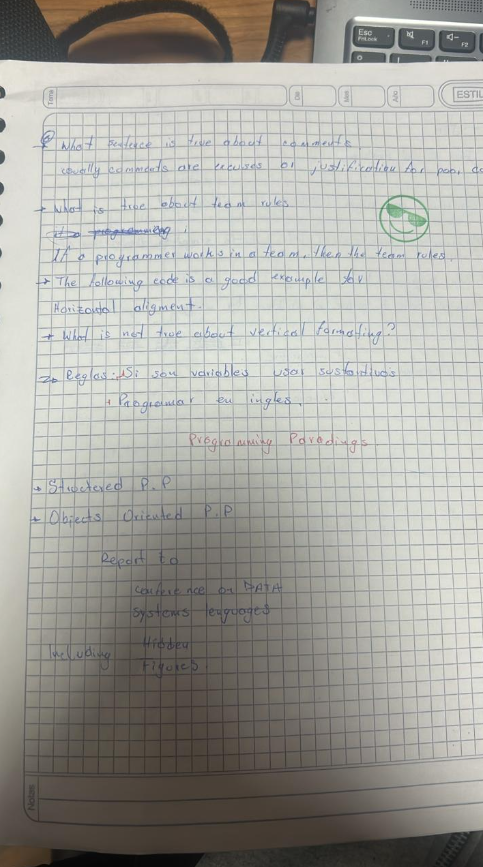 Esc
FnLock
F1
F2
Tema
Día
Mes
Año
ESTIL
What sentence is true about comments
usually comments are excuses or justification for poor
What is true about team rules
programming
If a programmer works in a team, then the team rules.
The following code is a good example for
Horizontal aligment.
What is not true about vertical formating?
Reglas: Si son variables usar sustantivos
Programar en ingles.
Programming Paradings
Structered P.P
Objects Oriented P.P
Report to
conference on DATA
systems lenguages
Including Hidden
Figures.
Notas